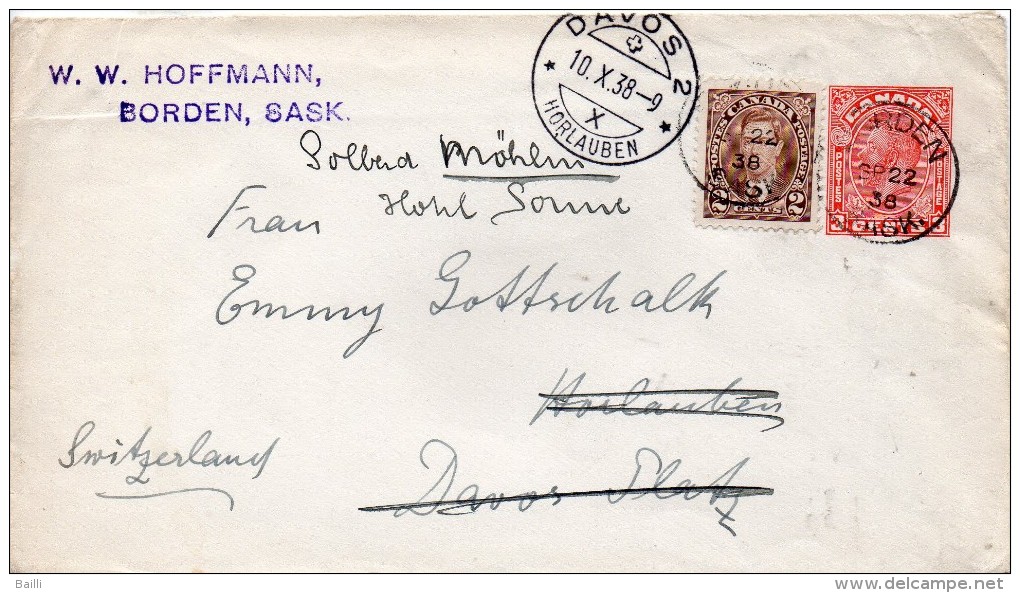 W. W. HOFFMANN,
BORDEN, SASK.
DAVOS 2
10. X. 38-9
X
HORLAUBEN
POSTES CANADA POSTAGE
2 CENTS 2
22
38
CANADA
POSTES POSTAGE
RDEN
SP 22
38
ASK.
Solbad Möhlin
Hotel Sonne
Frau
Emmy Gottschalk
Horlauben
Davos Platz
Switzerland
Bailli
delcampe.net